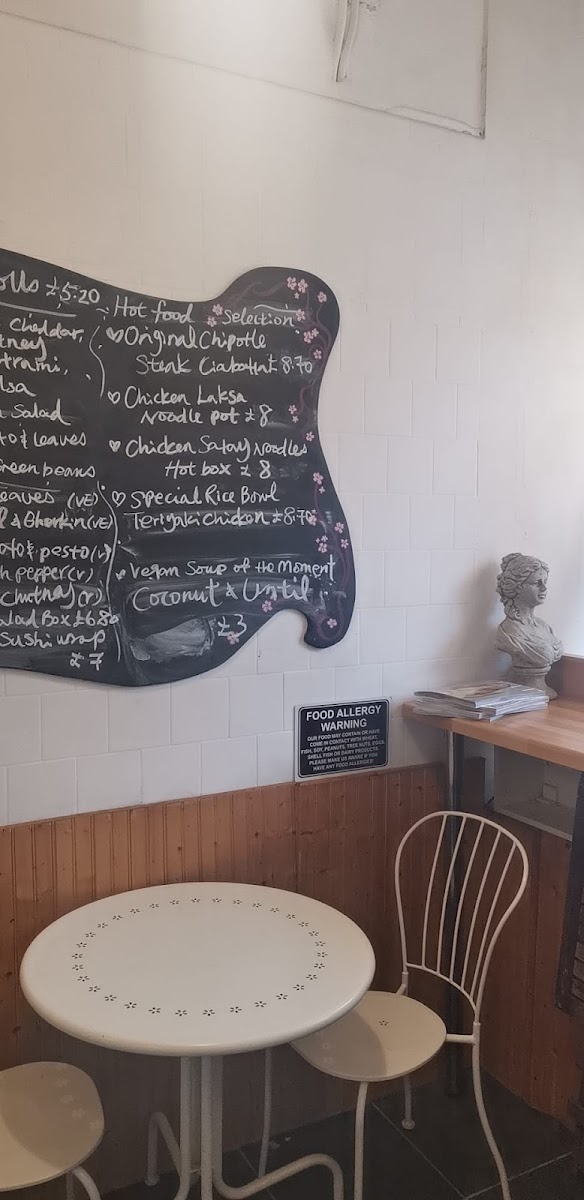 olls £5.20
Cheddar,
tney
trami,
lsa
Salad
to & leaves
Green beans
eaves (VE)
l & Gherkin (VE)
ato & pesto (v)
h pepper (v)
Chutney (v)
alad Box £6.80
Sushi wrap
£7
Hot food Selection
Original Chipotle
Steak Ciabatta £8.70
Chicken Laksa
Noodle pot £8
Chicken Satay Noodles
Hot box £8
Special Rice Bowl
Teriyaki chicken £8.70
Vegan Soup of the Moment
Coconut & Lintil
£3
FOOD ALLERGY
WARNING
OUR FOOD MAY CONTAIN OR HAVE
COME IN CONTACT WITH WHEAT,
FISH, SOY, PEANUTS, TREE NUTS, EGGS,
SHELL FISH OR DAIRY PRODUCTS.
PLEASE MAKE US AWARE IF YOU
HAVE ANY FOOD ALLERGIES!